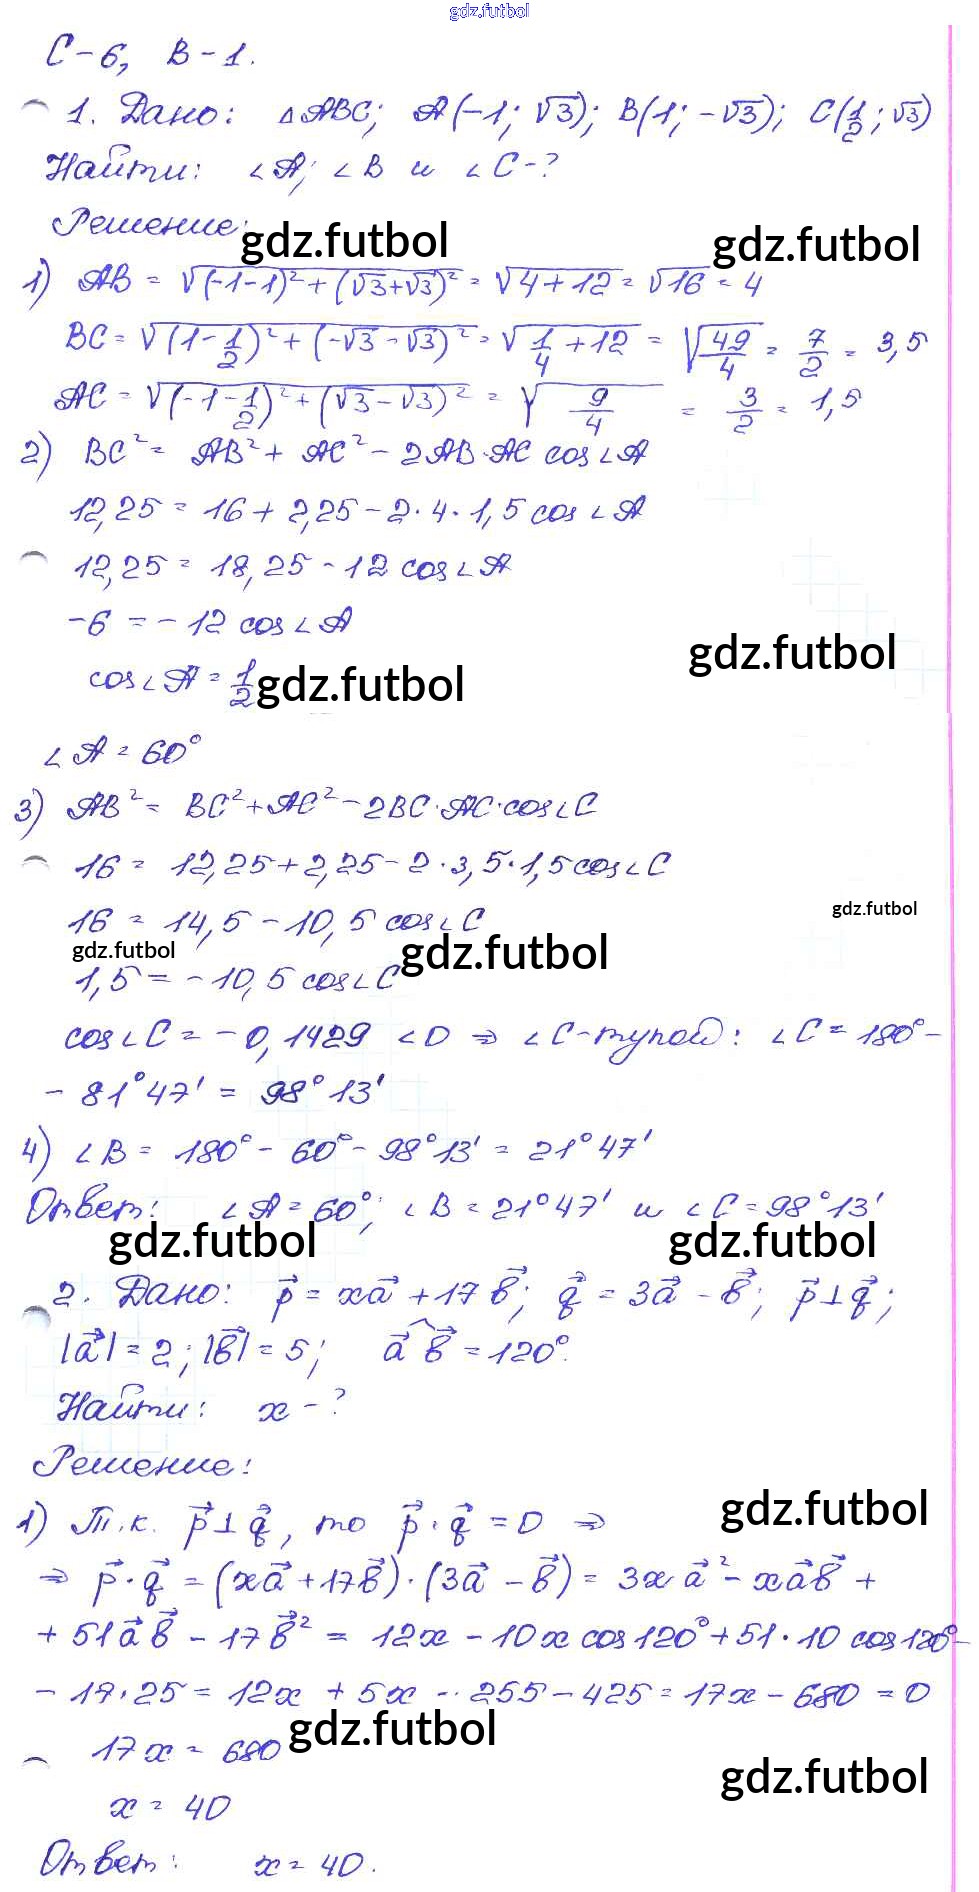 gdz.futbol
С-6, В-1.
1. Дано: △ABC; A(-1; √3); B(1; -√3); C(1/2; √3)
Найти: ∠A; ∠B и ∠C-?
Решение:
gdz.futbol gdz.futbol
1) AB = √((-1-1)²+(√3+√3)²) = √(4+12) = √16 = 4
BC = √((1-1/2)²+(-√3-√3)²) = √(1/4+12) = √(49/4) = 7/2 = 3,5
AC = √((-1-1/2)²+(√3-√3)²) = √(9/4) = 3/2 = 1,5
2) BC² = AB² + AC² - 2AB·AC cos∠A
12,25 = 16 + 2,25 - 2·4·1,5 cos∠A
12,25 = 18,25 - 12 cos∠A
-6 = -12 cos∠A
gdz.futbol
cos∠A = 1/2
gdz.futbol
∠A = 60°
3) AB² = BC² + AC² - 2BC·AC·cos∠C
16 = 12,25 + 2,25 - 2·3,5·1,5 cos∠C
gdz.futbol
16 = 14,5 - 10,5 cos∠C
gdz.futbol gdz.futbol
1,5 = -10,5 cos∠C
cos∠C = -0,1429 < 0 ⇒ ∠C-тупой: ∠C = 180° -
- 81°47' = 98°13'
4) ∠B = 180° - 60° - 98°13' = 21°47'
Ответ: ∠A = 60°; ∠B = 21°47' и ∠C = 98°13'
gdz.futbol gdz.futbol
2. Дано: p⃗ = xa⃗ + 17b⃗; q⃗ = 3a⃗ - b⃗; p⃗ ⊥ q⃗;
|a⃗| = 2; |b⃗| = 5; a⃗^b⃗ = 120°.
Найти: x - ?
Решение:
gdz.futbol
1) Т.к. p⃗ ⊥ q⃗, то p⃗·q⃗ = 0 ⇒
⇒ p⃗·q⃗ = (xa⃗ + 17b⃗)·(3a⃗ - b⃗) = 3xa⃗² - xa⃗b⃗ +
+ 51a⃗b⃗ - 17b⃗² = 12x - 10x cos120° + 51·10 cos120° -
- 17·25 = 12x + 5x - 255 - 425 = 17x - 680 = 0
gdz.futbol
17x = 680
gdz.futbol
x = 40
Ответ: x = 40.